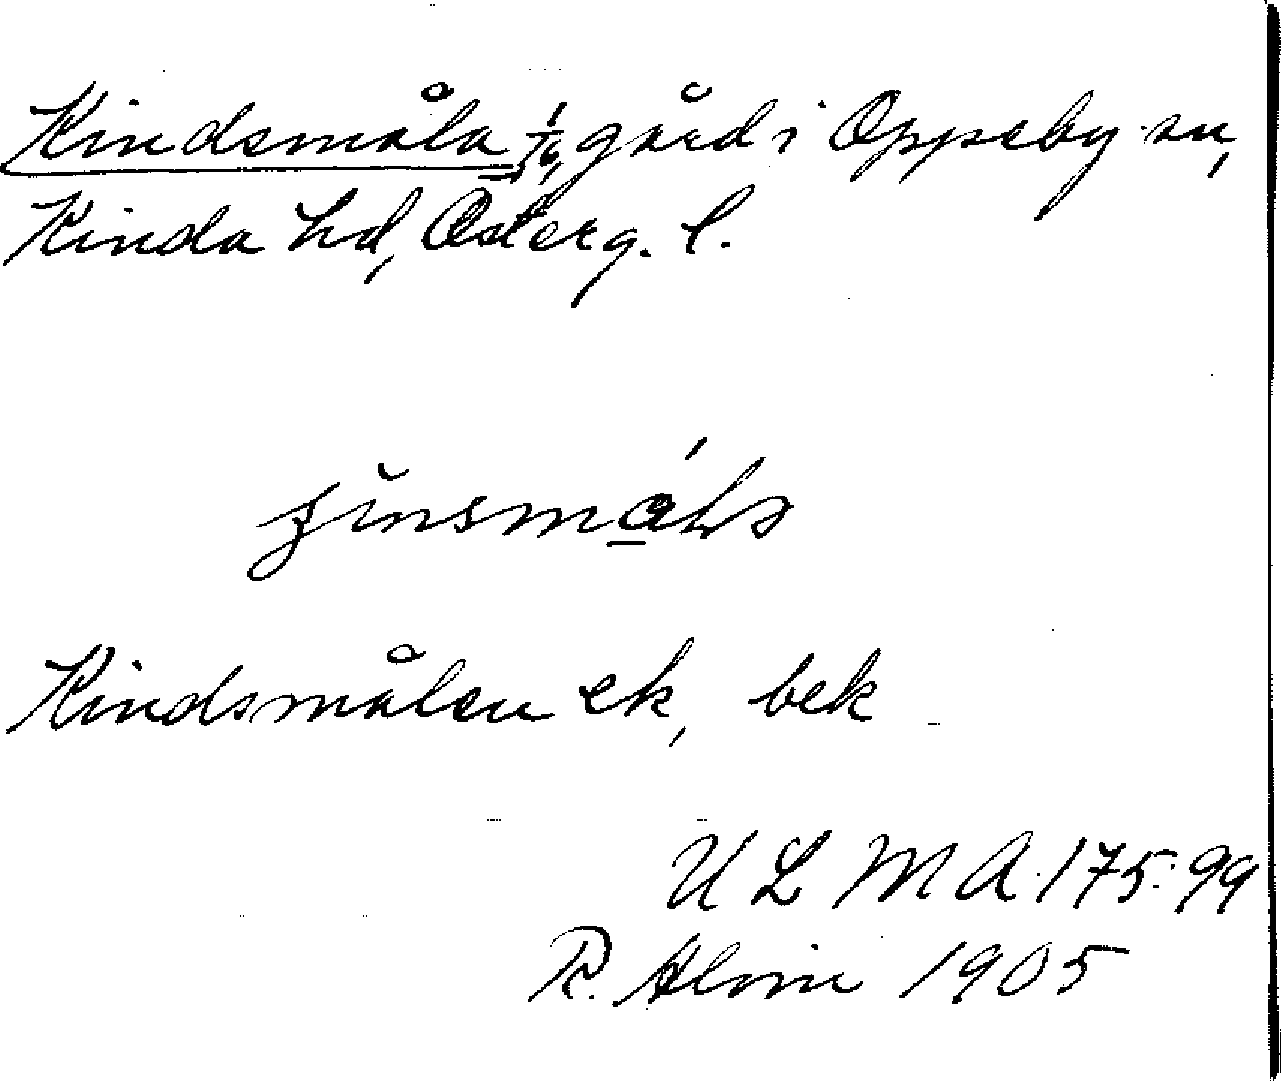 Kindsmåla 1/16, gård i Oppeby sn,
Kinda hd, Österg. l.
Kindsmålen ek, bek
ULMA 175:99
R. Alvin 1905